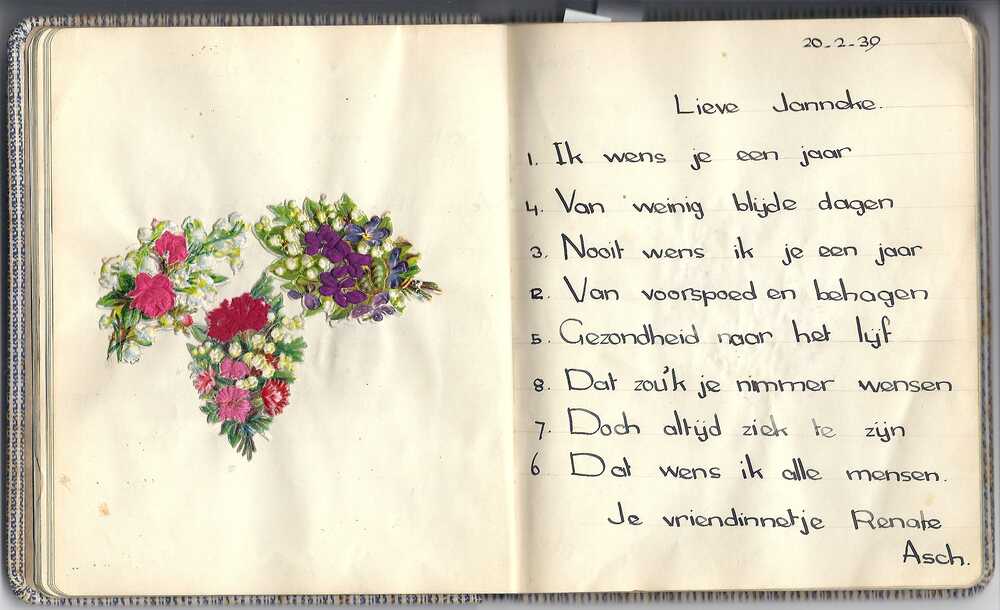 20-2-39
Lieve Janneke.
1. Ik wens je een jaar
4. Van weinig blijde dagen
3. Nooit wens ik je een jaar
2. Van voorspoed en behagen
5. Gezondheid naar het lijf
8. Dat zou'k je nimmer wensen
7. Doch altijd ziek te zijn
6 Dat wens ik alle mensen.
Je vriendinnetje Renate
Asch.